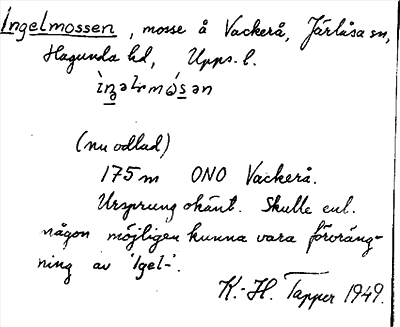 Ingelmossen, mosse å Vackerå, Järlåsa sn,
Hagunda hd, Upps. l.
(nu odlad)
175 m ONO Vackerå.
Ursprung okänt. Skulle enl.
någon möjligen kunna vara förvräng-
ning av 'Igel-'.
K.-H. Tapper 1949.